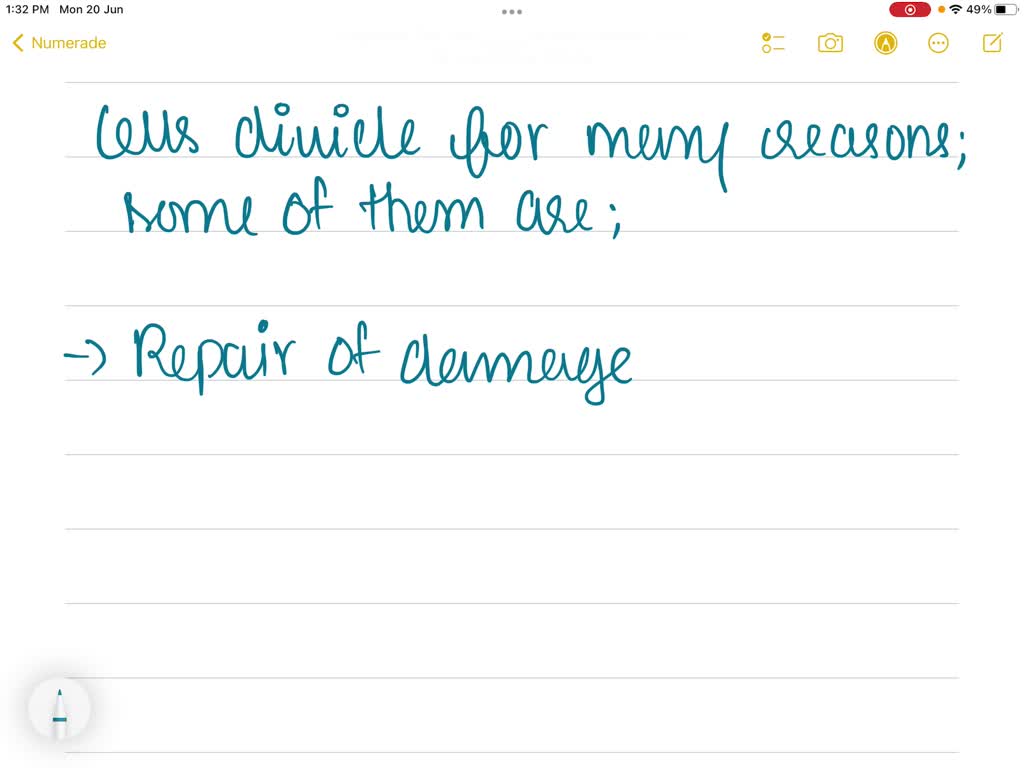 1:32 PM Mon 20 Jun
49%
Numerade
Cells divide for many reasons;
some of them are;
→ Repair of damage